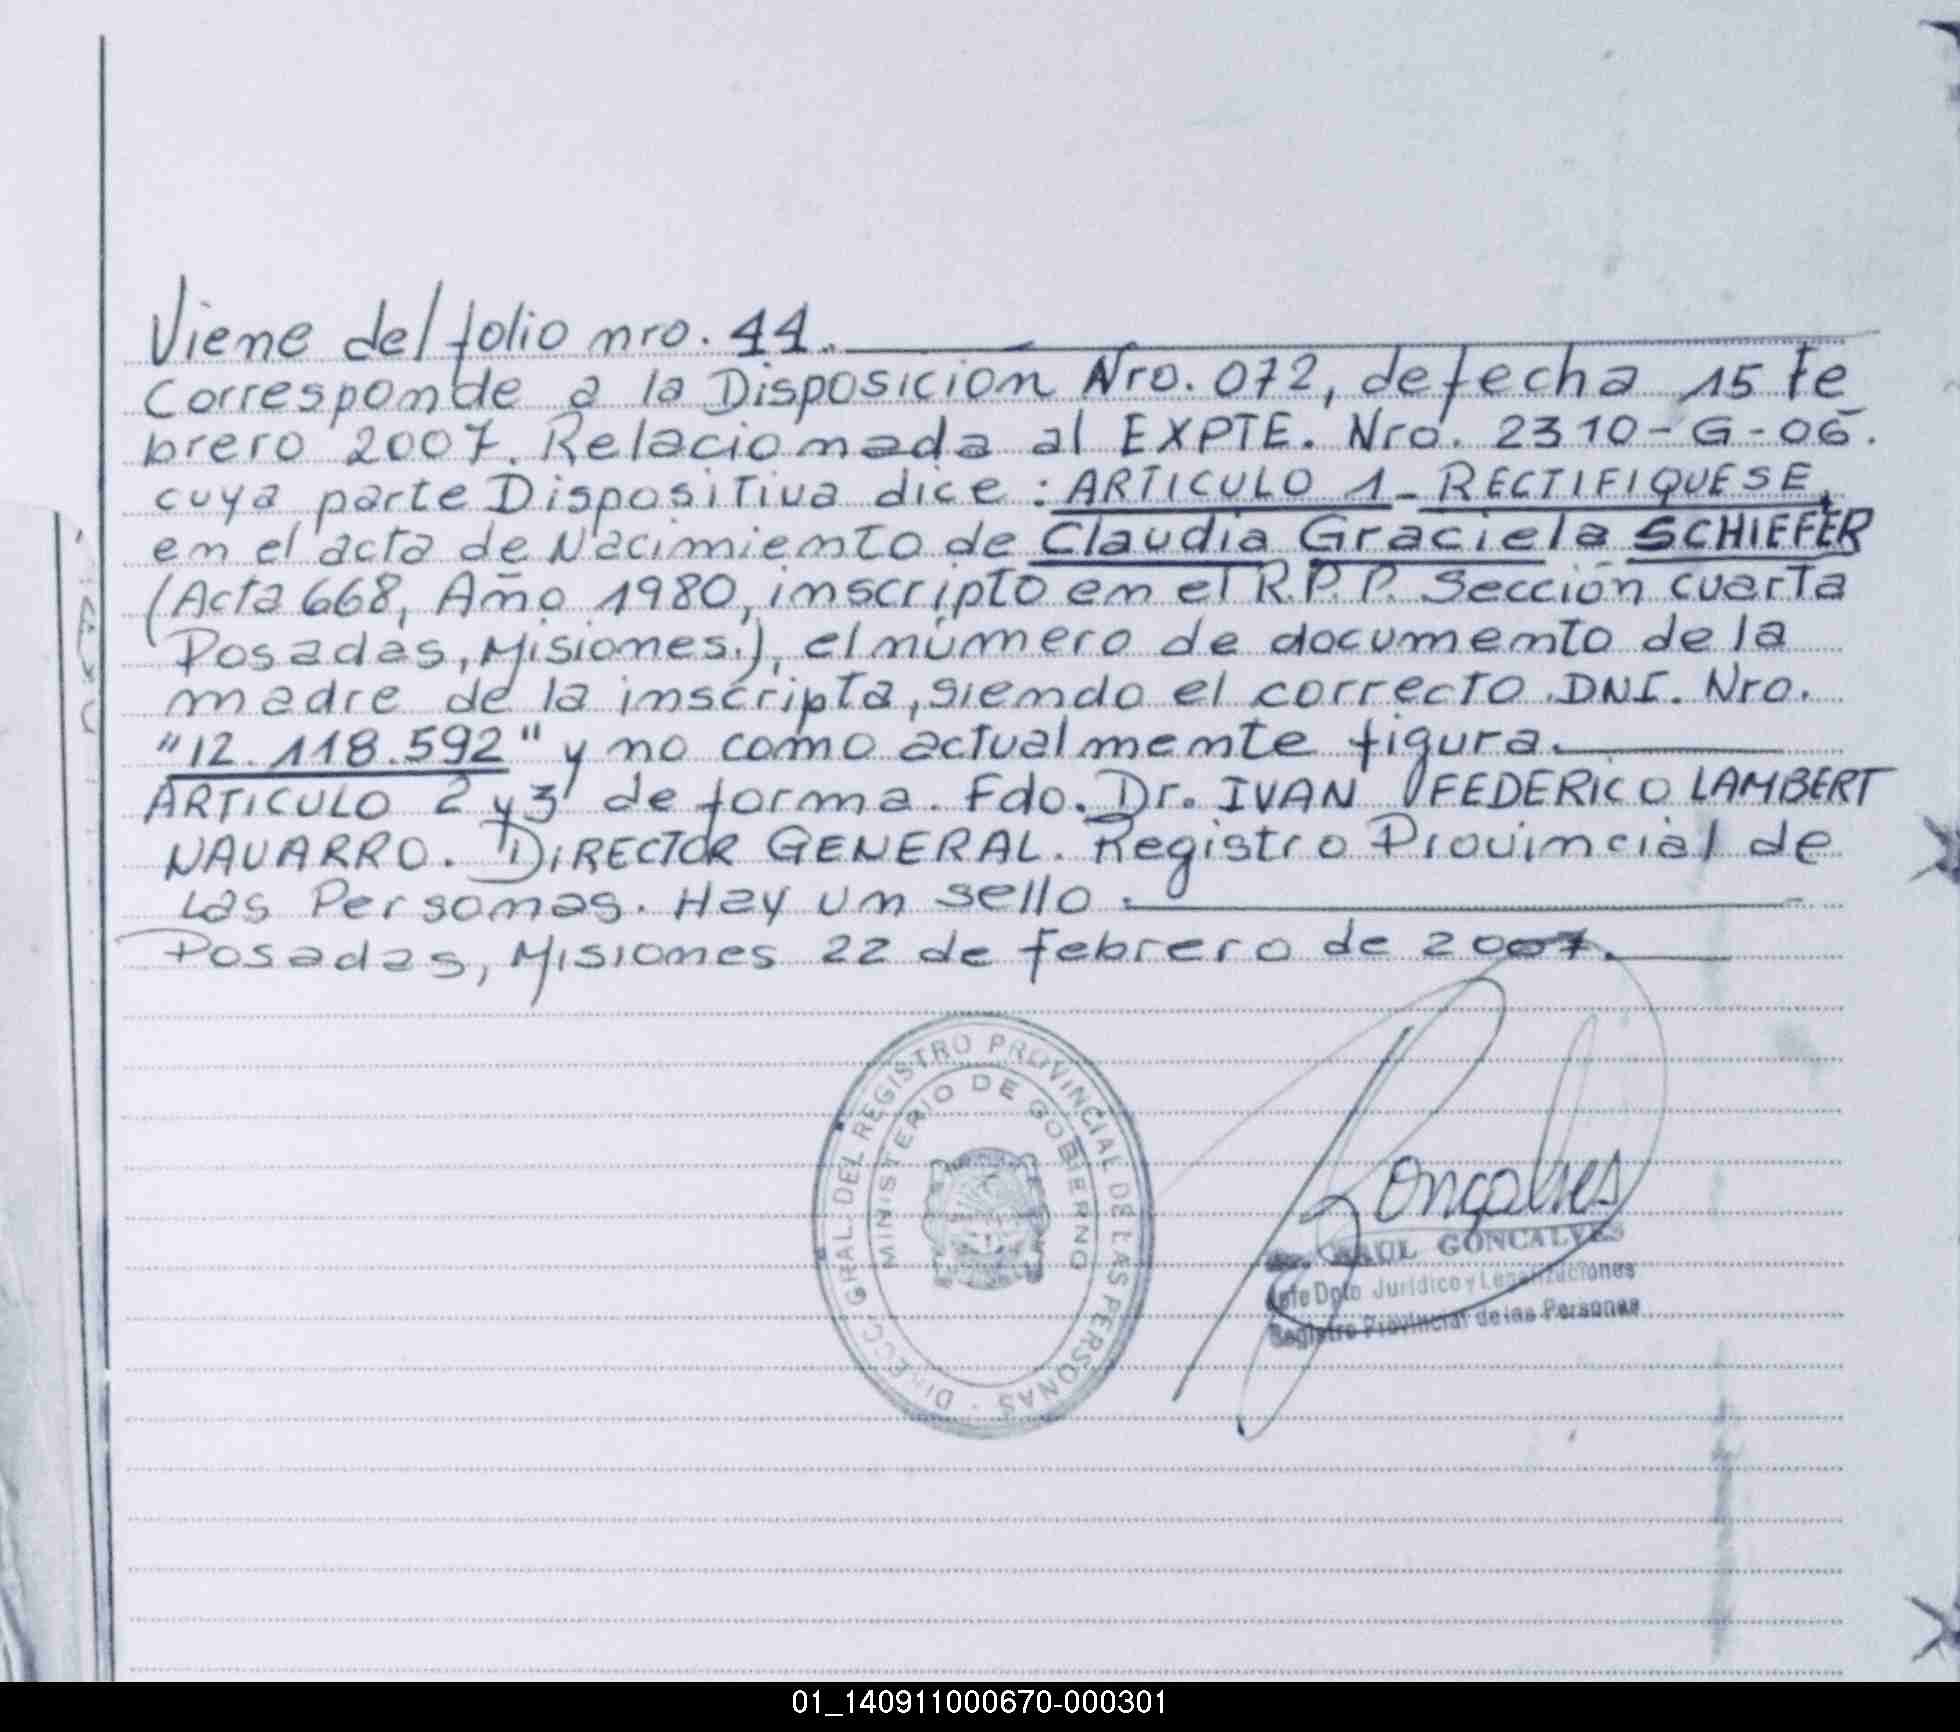 Viene del folio nro. 44.
Corresponde a la Disposicion Nro. 072, de fecha 15 fe
brero 2007. Relacionada al EXPTE. Nro. 2310-G-06.
cuya parte Dispositiva dice: ARTICULO 1- RECTIFIQUESE,
en el acta de Nacimiento de Claudia Graciela SCHIEFER
(Acta 668, Año 1980, inscripto en el R.P.P. Sección cuarta
Posadas, Misiones.), el número de documento de la
madre de la inscripta, siendo el correcto DNI. Nro.
"12.118.592" y no como actualmente figura.
ARTICULO 2 y 3 de forma. Fdo. Dr. IVAN FEDERICO LAMBERT
NAVARRO. DIRECTOR GENERAL. Registro Provincial de
Las Personas. Hay un sello.
Posadas, Misiones 22 de febrero de 2007.
DIRECC. GRAL. DEL REGISTRO PROVINCIAL DE LAS PERSONAS
MINISTERIO DE GOBIERNO
Gonçalves
RAUL GONCALVES
Jefe Dpto Jurídico y Legalizaciones
Registro Provincial de las Personas
01_140911000670-000301